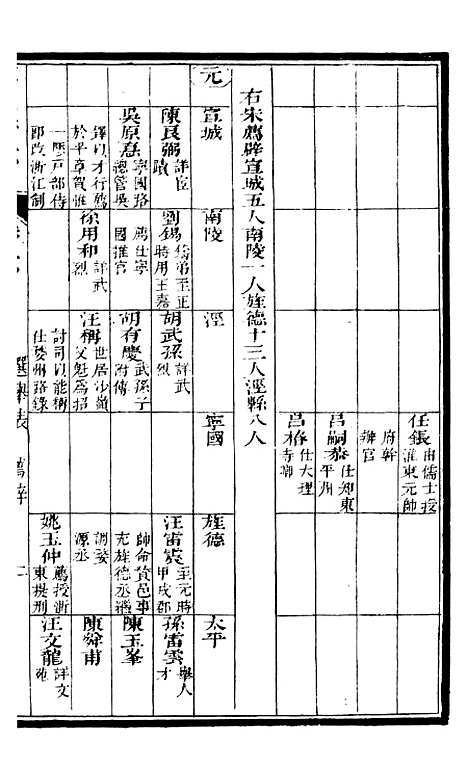 任鋹 由儒士授淮東元帥
府幹辦官
呂嗣恭 仕知東平州
呂椿 仕大理寺卿
右宋薦辟宣城五人南陵一人旌德十三人涇縣八人
元 宣城 南陵 涇 寧國 旌德 太平
陳良弼 詳宦蹟
劉錫 至正時用王嘉
胡武孫 詳武烈
汪雷震 至元時甲戌郡
孫雷雲 舉人才
吳原意 寧國路總管吳
薦仕寧國推官
胡有慶 武孫子附傳
帥命贊邑事充旌德丞遷
陳玉峯
鐸以才行薦於平章賀惟
徐用和 詳武烈
汪梅 世居沙嶺父魁為招
調婺源丞
陳舜甫
一歷戶部侍郎改浙江制
討司以能稱仕婺州路錄
姚玉仲 薦授浙東提刑
汪文龍 詳文苑
選舉表 薦辟 二